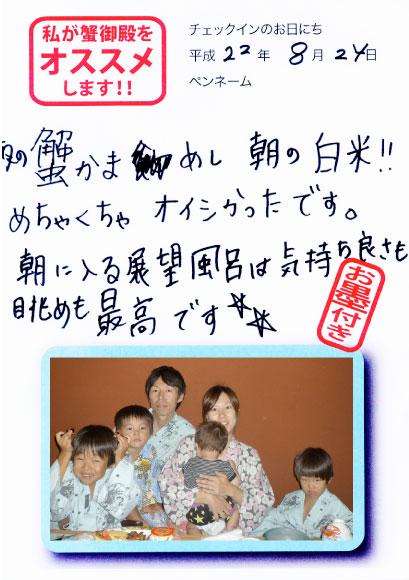 私が蟹御殿を
オススメ
します!!
チェックインのお日にち
平成 22 年 8 月 24 日
ペンネーム
夕の蟹かま めし 朝の白米!!
めちゃくちゃ オイシかったです。
朝に入る展望風呂は気持ち良さも
眺めも最高です☆☆
お墨付き